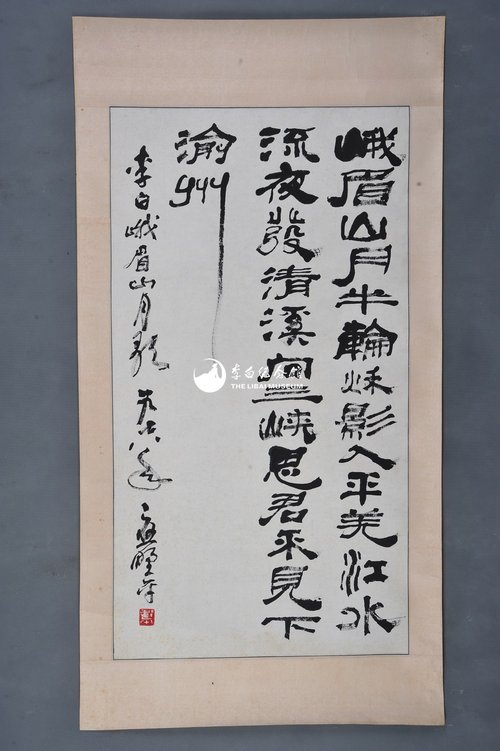 峨眉山月半輪秋影入平羌江水
流夜發清溪向三峽思君不見下
渝州
李白峨眉山月歌
李白纪念馆
THE LIBAI MUSEUM